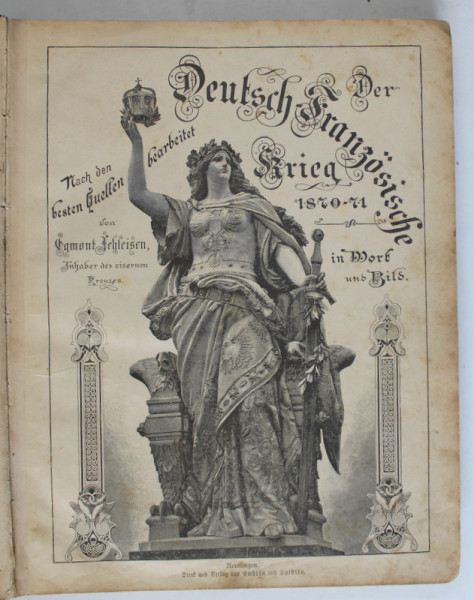 Der
Deutsch Französische
Krieg
1870-71
in Wort
und Bild.
Nach den
besten Quellen
bearbeitet
von
Egmont Fehleisen,
Inhaber des eisernen
Kreuzes.
Reutlingen.
Druck und Verlag von